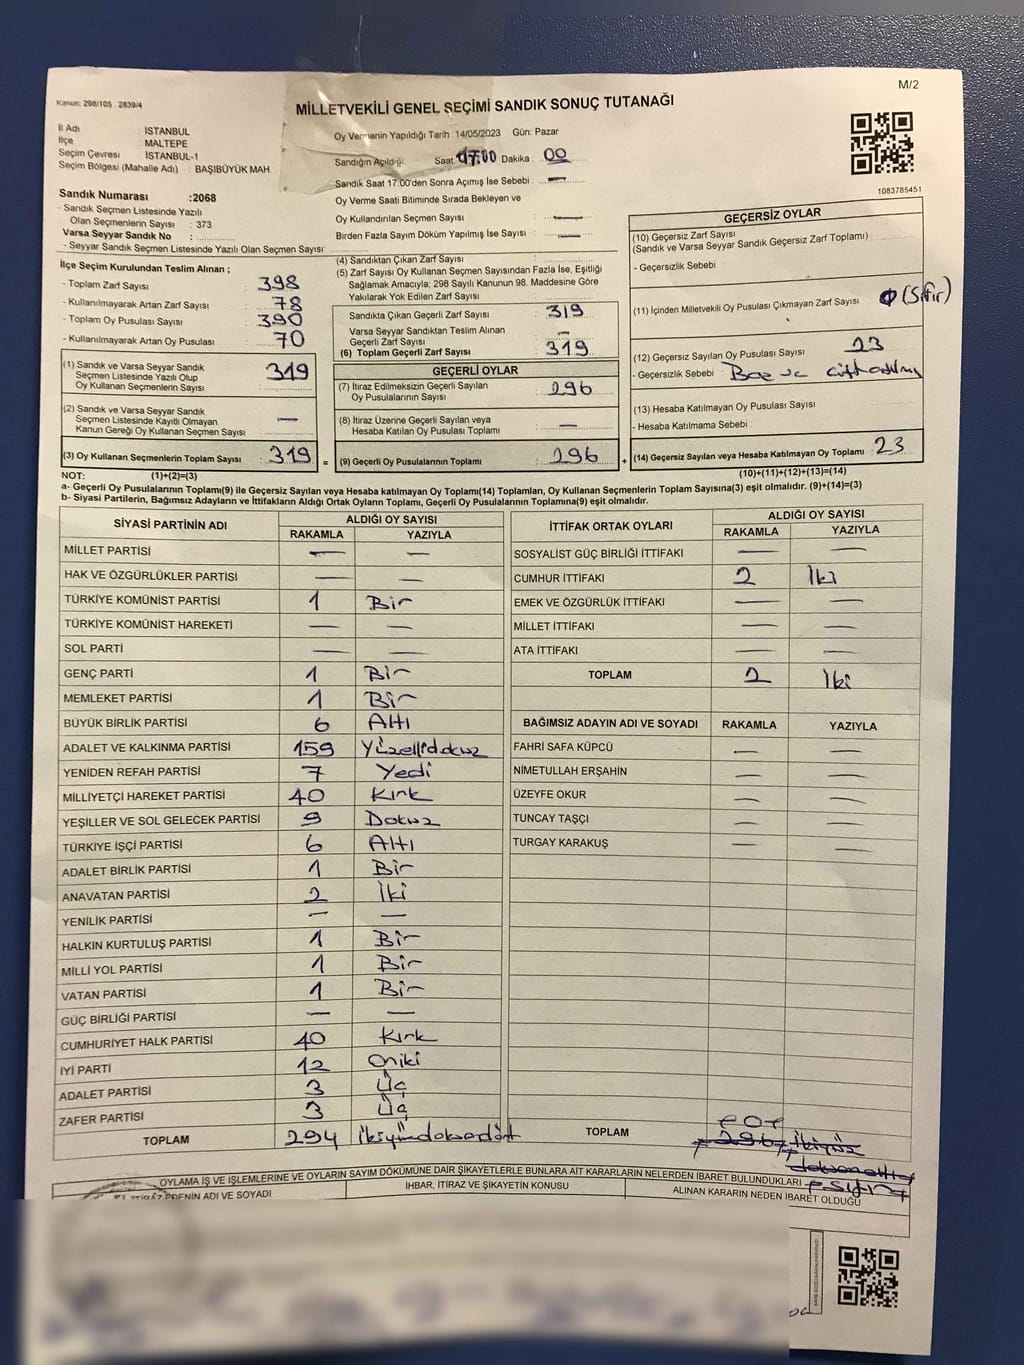 M/2
Kanun: 298/105 . 2839/4
MİLLETVEKİLİ GENEL SEÇİMİ SANDIK SONUÇ TUTANAĞI
İl Adı : İSTANBUL
İlçe : MALTEPE
Seçim Çevresi : İSTANBUL-1
Seçim Bölgesi (Mahalle Adı) : BAŞIBÜYÜK MAH
Oy Vermenin Yapıldığı Tarih 14/05/2023 Gün: Pazar
Sandığın Açıldığı Saat 17:00 Dakika : 00
Sandık Saat 17:00'den Sonra Açımış İse Sebebi : —
Oy Verme Saati Bitiminde Sırada Bekleyen ve
Oy Kullandırılan Seçmen Sayısı —
Birden Fazla Sayım Döküm Yapılmış İse Sayısı —
1083785451
Sandık Numarası :2068
- Sandık Seçmen Listesinde Yazılı
Olan Seçmenlerin Sayısı : 373
Varsa Seyyar Sandık No :
- Seyyar Sandık Seçmen Listesinde Yazılı Olan Seçmen Sayısı:
İlçe Seçim Kurulundan Teslim Alınan ;
- Toplam Zarf Sayısı : 398
- Kullanılmayarak Artan Zarf Sayısı : 78
- Toplam Oy Pusulası Sayısı : 390
- Kullanılmayarak Artan Oy Pusulası : 70
(1) Sandık ve Varsa Seyyar Sandık
Seçmen Listesinde Yazılı Olup
Oy Kullanan Seçmenlerin Sayısı : 319
(2) Sandık ve Varsa Seyyar Sandık
Seçmen Listesinde Kayıtlı Olmayan
Kanun Gereği Oy Kullanan Seçmen Sayısı : —
(3) Oy Kullanan Seçmenlerin Toplam Sayısı : 319 =
(4) Sandıktan Çıkan Zarf Sayısı :
(5) Zarf Sayısı Oy Kullanan Seçmen Sayısından Fazla İse, Eşitliği
Sağlamak Amacıyla; 298 Sayılı Kanunun 98. Maddesine Göre
Yakılarak Yok Edilen Zarf Sayısı :
Sandıkta Çıkan Geçerli Zarf Sayısı : 319
Varsa Seyyar Sandıktan Teslim Alınan
Geçerli Zarf Sayısı : —
(6) Toplam Geçerli Zarf Sayısı : 319
GEÇERLİ OYLAR
(7) İtiraz Edilmeksizin Geçerli Sayılan
Oy Pusulalarının Sayısı : 296
(8) İtiraz Üzerine Geçerli Sayılan veya
Hesaba Katılan Oy Pusulası Toplamı : —
(9) Geçerli Oy Pusulalarının Toplamı : 296 +
GEÇERSİZ OYLAR
(10) Geçersiz Zarf Sayısı
(Sandık ve Varsa Seyyar Sandık Geçersiz Zarf Toplamı) :
- Geçersizlik Sebebi :
(11) İçinden Milletvekili Oy Pusulası Çıkmayan Zarf Sayısı : 0 (Sıfır)
(12) Geçersiz Sayılan Oy Pusulası Sayısı : 23
- Geçersizlik Sebebi : Boş ve
(13) Hesaba Katılmayan Oy Pusulası Sayısı :
- Hesaba Katılmama Sebebi :
(14) Geçersiz Sayılan veya Hesaba Katılmayan Oy Toplamı : 23
NOT: (1)+(2)=(3) (10)+(11)+(12)+(13)=(14)
a- Geçerli Oy Pusulalarının Toplamı(9) ile Geçersiz Sayılan veya Hesaba katılmayan Oy Toplamı(14) Toplamları, Oy Kullanan Seçmenlerin Toplam Sayısına(3) eşit olmalıdır. (9)+(14)=(3)
b- Siyasi Partilerin, Bağımsız Adayların ve İttifakların Aldığı Ortak Oyların Toplamı, Geçerli Oy Pusulalarının Toplamına(9) eşit olmalıdır.
SİYASİ PARTİNİN ADI ALDIĞI OY SAYISI
RAKAMLA YAZIYLA
MİLLET PARTİSİ — —
HAK VE ÖZGÜRLÜKLER PARTİSİ — —
TÜRKİYE KOMÜNİST PARTİSİ 1 Bir
TÜRKİYE KOMÜNİST HAREKETİ — —
SOL PARTİ — —
GENÇ PARTİ 1 Bir
MEMLEKET PARTİSİ 1 Bir
BÜYÜK BİRLİK PARTİSİ 6 Altı
ADALET VE KALKINMA PARTİSİ 159 Yüzellidokuz
YENİDEN REFAH PARTİSİ 7 Yedi
MİLLİYETÇİ HAREKET PARTİSİ 40 Kırk
YEŞİLLER VE SOL GELECEK PARTİSİ 9 Dokuz
TÜRKİYE İŞÇİ PARTİSİ 6 Altı
ADALET BİRLİK PARTİSİ 1 Bir
ANAVATAN PARTİSİ 2 İki
YENİLİK PARTİSİ — —
HALKIN KURTULUŞ PARTİSİ 1 Bir
MİLLİ YOL PARTİSİ 1 Bir
VATAN PARTİSİ 1 Bir
GÜÇ BİRLİĞİ PARTİSİ — —
CUMHURİYET HALK PARTİSİ 40 Kırk
İYİ PARTİ 12 Oniki
ADALET PARTİSİ 3 Üç
ZAFER PARTİSİ 3 Üç
TOPLAM 294 ikiyüzdoksandört
İTTİFAK ORTAK OYLARI ALDIĞI OY SAYISI
RAKAMLA YAZIYLA
SOSYALİST GÜÇ BİRLİĞİ İTTİFAKI — —
CUMHUR İTTİFAKI 2 İki
EMEK VE ÖZGÜRLÜK İTTİFAKI — —
MİLLET İTTİFAKI — —
ATA İTTİFAKI — —
TOPLAM 2 İki
BAĞIMSIZ ADAYIN ADI VE SOYADI RAKAMLA YAZIYLA
FAHRİ SAFA KÜPCÜ — —
NİMETULLAH ERŞAHİN — —
ÜZEYFE OKUR — —
TUNCAY TAŞÇI — —
TURGAY KARAKUŞ — —
TOPLAM 296 ikiyüz
doksanaltı
OYLAMA İŞ VE İŞLEMLERİNE VE OYLARIN SAYIM DÖKÜMÜNE DAİR ŞİKAYETLERLE BUNLARA AİT KARARLARIN NELERDEN İBARET BULUNDUKLARI
İTİRAZ EDENİN ADI VE SOYADI İHBAR, İTİRAZ VE ŞİKAYETİN KONUSU ALINAN KARARIN NEDEN İBARET OLDUĞU